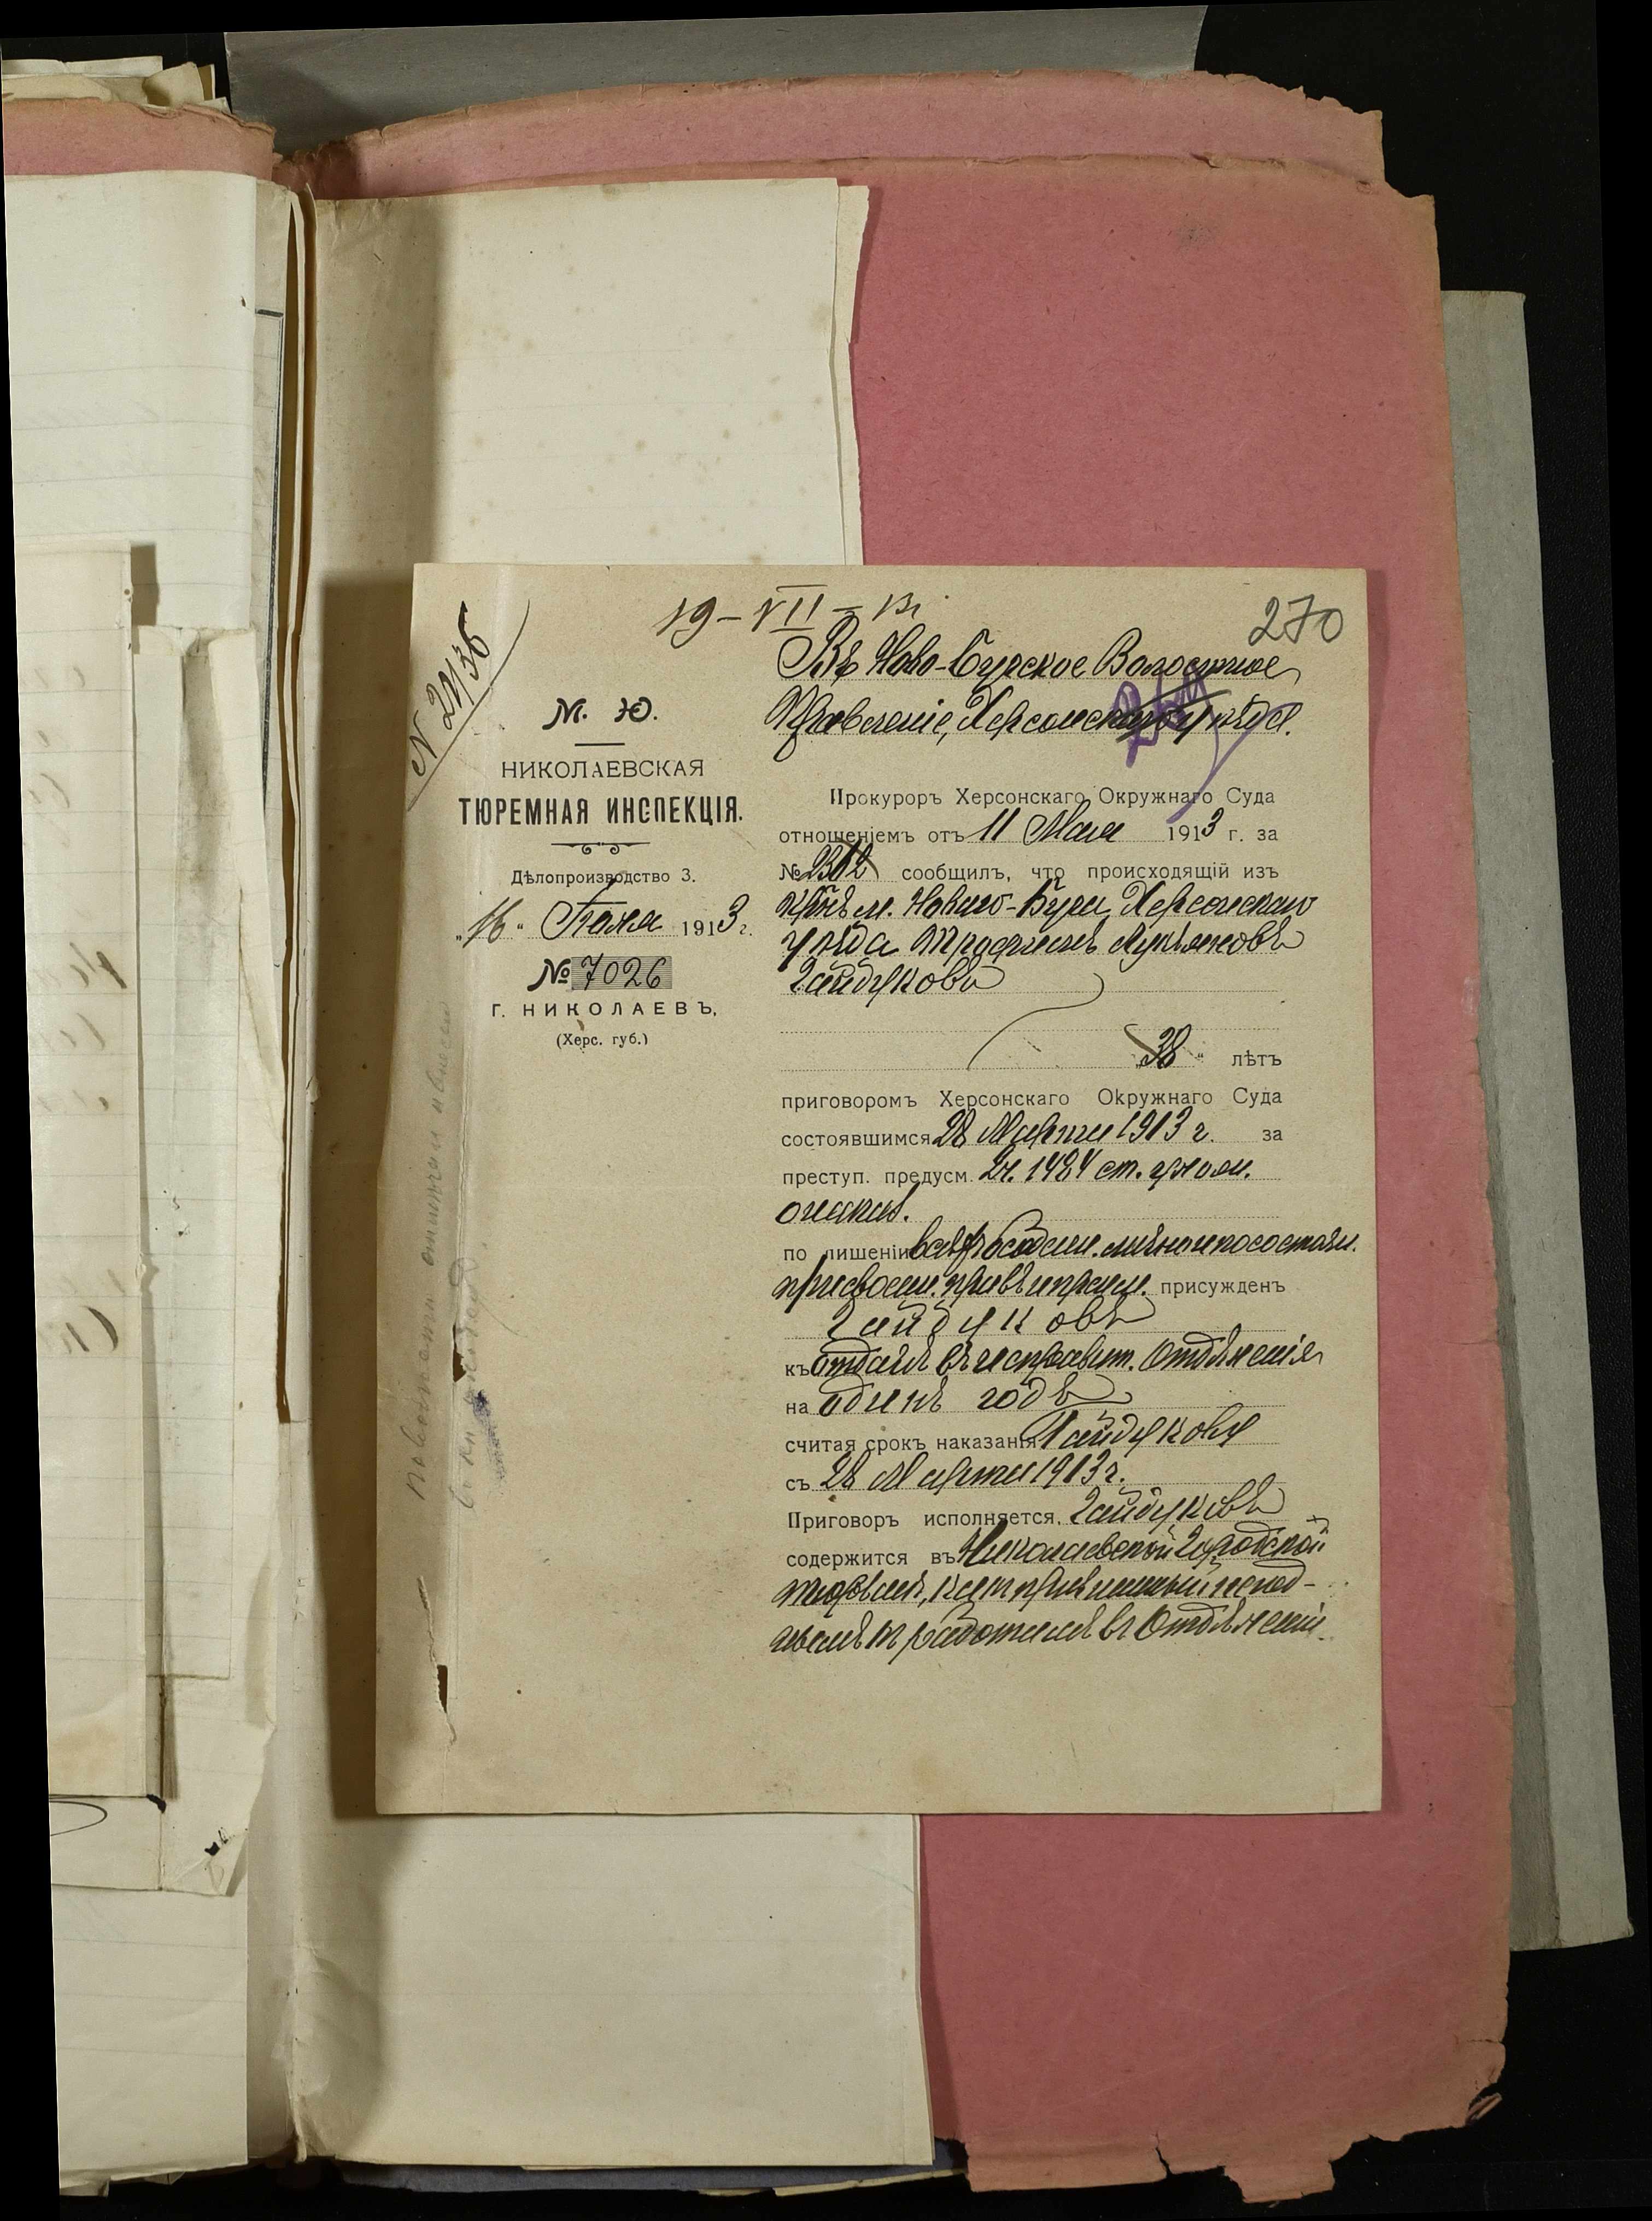 19-VII-13
270
№ 2036
Въ Ново-Бугское Волостное
Правленіе, Херсонскаго уѣзда.
М. Ю.
НИКОЛАЕВСКАЯ
ТЮРЕМНАЯ ИНСПЕКЦІЯ.
Дѣлопроизводство 3.
„16“ Іюля 1913 г.
№ 7026
Г. НИКОЛАЕВЪ,
(Херс. губ.)
Прокуроръ Херсонскаго Окружнаго Суда
отношеніемъ отъ 11 Мая 1913 г. за
№ 2362 сообщилъ, что происходящій изъ
кр-нъ м. Новаго-Буга, Херсонскаго
уѣзда Трофимъ Лукьяновъ
Гайдуковъ
„38“ лѣтъ
приговоромъ Херсонскаго Окружнаго Суда
состоявшимся 28 Марта 1913 г. за
преступ. предусм. 2 ч. 1484 ст. улож.
о наказ.
по лишеніи всѣхъ особен. лично и по состоян.
присвоен. правъ и преим. присужденъ
Гайдуковъ
къ отдачѣ въ исправит. отдѣленія
на одинъ годъ
считая срокъ наказанія Гайдукову
съ 28 Марта 1913 г.
Приговоръ исполняется. Гайдуковъ
содержится въ Николаевской городской
тюрьмѣ, как признанный негод-
нымъ къ работамъ въ Отдѣленіи.